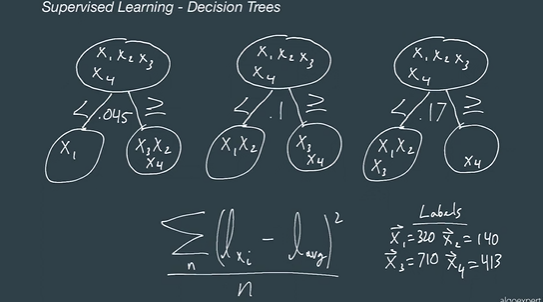 Supervised Learning - Decision Trees
x₁ x₂ x₃
x₄
x₁ x₂ x₃
x₄
x₁ x₂ x₃
x₄
< .045 ≥
< .1 ≥
< .17 ≥
x₁
x₃ x₂
x₄
x₁ x₂
x₃
x₄
x₁ x₂
x₃
x₄
∑ₙ (l_{xᵢ} - l_{avg})²
n
Labels
x⃗₁=320 x⃗₂=140
x⃗₃=710 x⃗₄=413
algoexpert